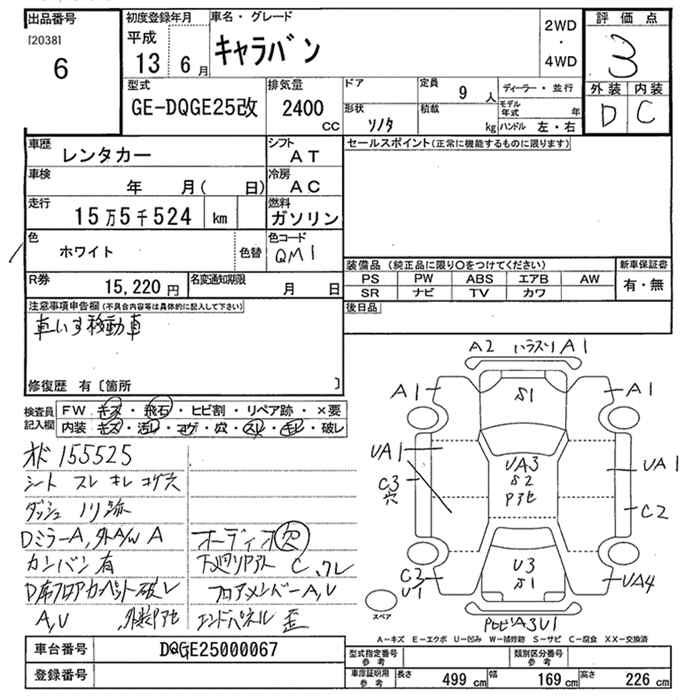 出品番号 初度登録年月 車名・グレード 評価点
[2038] 平成 キャラバン 2WD・4WD 3
6 13 6月 外装 内装
型式 排気量 ドア 定員 9人 ディーラー・並行 D C
GE-DQGE25改 2400cc 形状 ソノタ 積載 kg モデル年式 年 ハンドル 左・右
車歴 レンタカー シフト AT セールスポイント(正常に機能するものに限ります)
車検 年 月( 日) 冷房 AC
走行 15万5千524 km 燃料 ガソリン
色 ホワイト 色替 色コード QM1
装備品(純正品に限り○をつけてください) 新車保証書
R券 15,220円 名変通知期限 月 日 PS PW ABS エアB AW 有・無
SR ナビ TV カワ
注意事項申告欄(不具合内容等は具体的に記入して下さい) 後日品
車いす移動車
修復歴 有〔箇所 〕
検査員記入欄 FW キズ・飛石・ヒビ割・リペア跡・×要
内装 キズ・汚レ・コゲ・穴・スレ・キレ・破レ
オド 155525
シート スレ キレ コゲ穴
ダッシュ ノリ跡
DミラーA,外A/W A オーディオ欠
カンバン有 下廻リアト C,クレ
フロアカーペット破レ フロアメンバーA,U
A,U エンドパネル歪
A2 ハラスリ A1
A1 S1 A1
UA1 UA3 UA1
C3 S2
穴 C2
U3
C3 S1 UA4
U1
スペア A3U1
A-キズ E-エクボ U-凹ミ W-補修跡 S-サビ C-腐食 XX-交換済
車台番号 DQGE25000067 型式指定番号参考 類別区分番号参考
登録番号 車庫証明用参考 長さ 499cm 幅 169cm 高さ 226cm